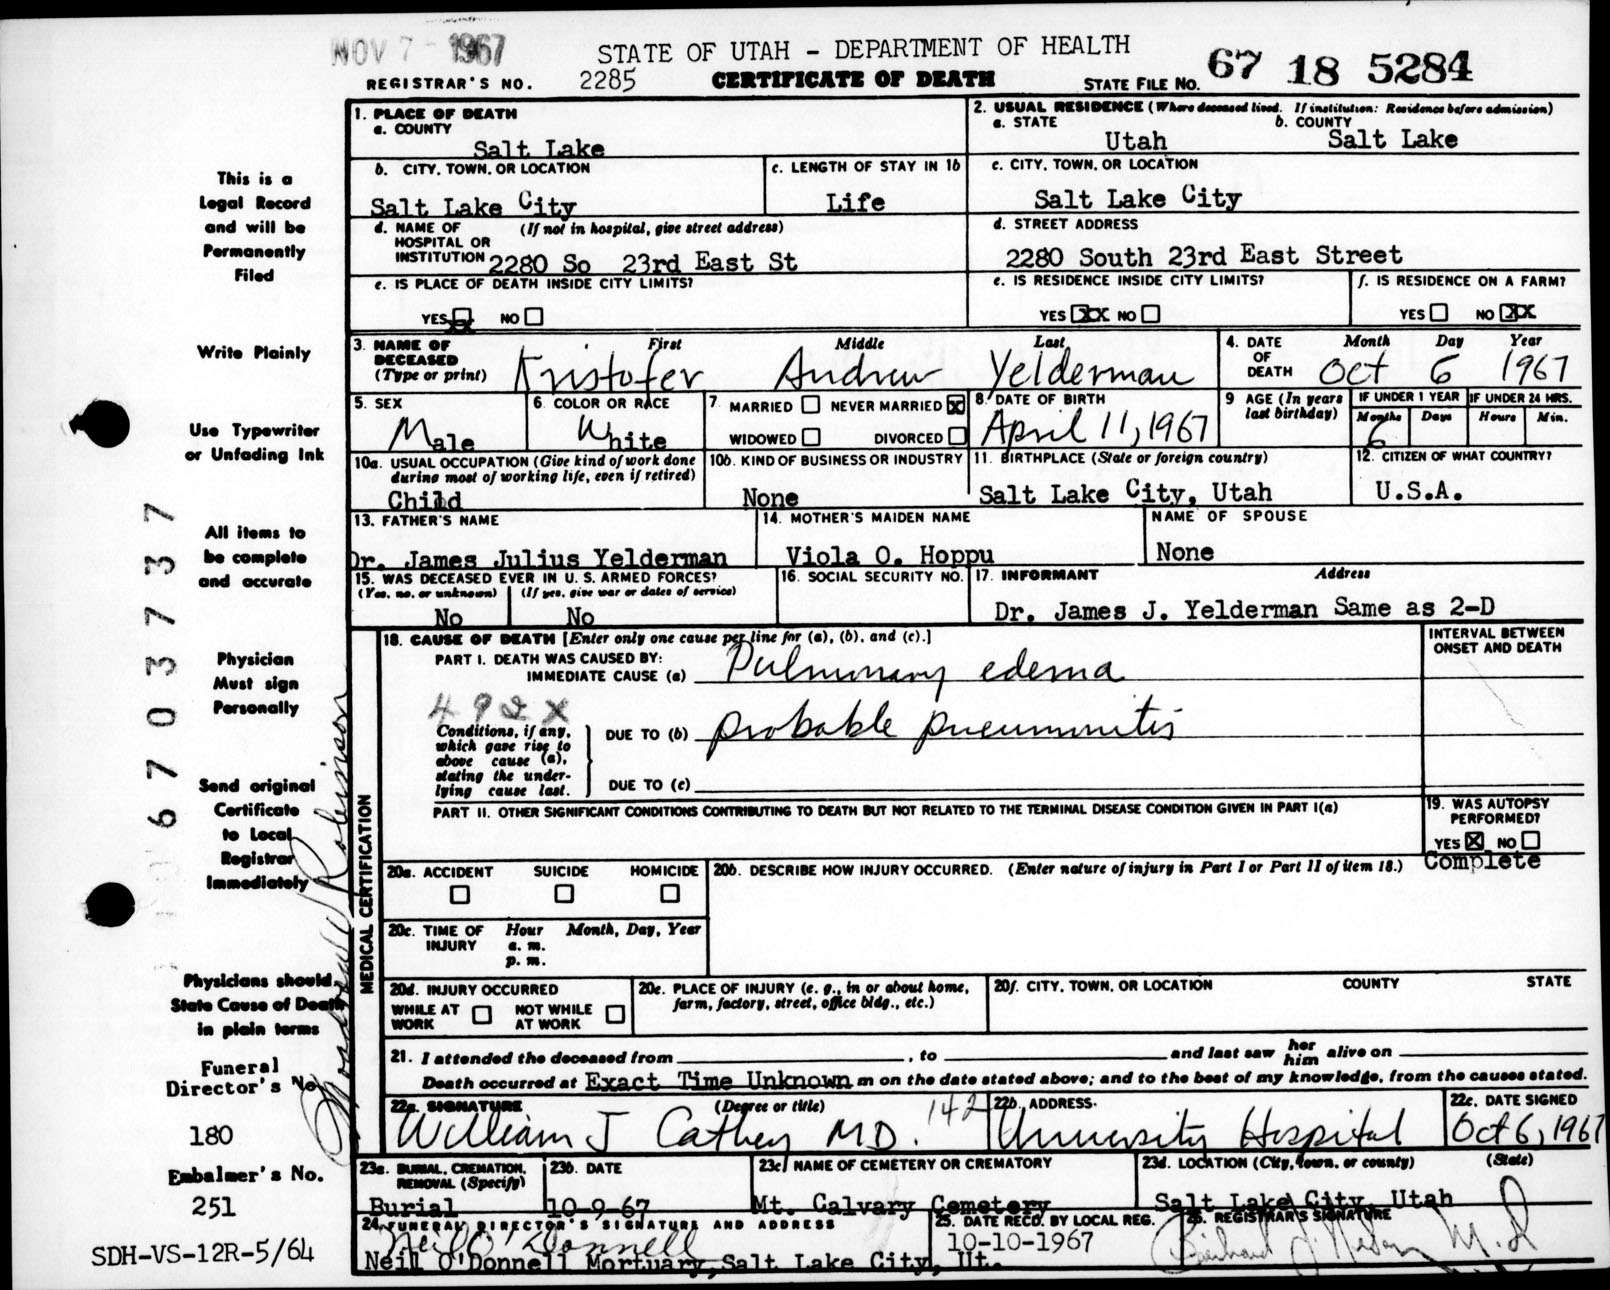 NOV 7 - 1967
STATE OF UTAH - DEPARTMENT OF HEALTH
REGISTRAR'S NO. 2285 CERTIFICATE OF DEATH STATE FILE NO. 67 18 5284
This is a
Legal Record
and will be
Permanently
Filed
Write Plainly
Use Typewriter
or Unfading Ink
All items to
be complete
and accurate
Physician
Must sign
Personally
Send original
Certificate
to Local
Registrar
Immediately
Physicians should
State Cause of Death
in plain terms
Funeral
Director's No.
180
Embalmer's No.
251
SDH-VS-12R-5/64
67037737
Robinson
1. PLACE OF DEATH
a. COUNTY
Salt Lake
2. USUAL RESIDENCE (Where deceased lived. If institution: Residence before admission)
a. STATE b. COUNTY
Utah Salt Lake
b. CITY, TOWN, OR LOCATION
Salt Lake City
c. LENGTH OF STAY IN 1b
Life
c. CITY, TOWN, OR LOCATION
Salt Lake City
d. NAME OF (If not in hospital, give street address)
HOSPITAL OR
INSTITUTION 2280 So 23rd East St
d. STREET ADDRESS
2280 South 23rd East Street
e. IS PLACE OF DEATH INSIDE CITY LIMITS?
YES XX NO
e. IS RESIDENCE INSIDE CITY LIMITS?
YES XX NO
f. IS RESIDENCE ON A FARM?
YES NO XX
3. NAME OF DECEASED (Type or print) First Middle Last
Kristofer Andrew Yelderman
4. DATE OF DEATH Month Day Year
Oct 6 1967
5. SEX
Male
6. COLOR OR RACE
White
7. MARRIED NEVER MARRIED X
WIDOWED DIVORCED
8. DATE OF BIRTH
April 11, 1967
9 AGE (In years last birthday) IF UNDER 1 YEAR IF UNDER 24 HRS.
Months Days Hours Min.
6
10a. USUAL OCCUPATION (Give kind of work done
during most of working life, even if retired)
Child
10b. KIND OF BUSINESS OR INDUSTRY
None
11. BIRTHPLACE (State or foreign country)
Salt Lake City, Utah
12. CITIZEN OF WHAT COUNTRY?
U.S.A.
13. FATHER'S NAME
Dr. James Julius Yelderman
14. MOTHER'S MAIDEN NAME
Viola O. Hoppu
NAME OF SPOUSE
None
15. WAS DECEASED EVER IN U. S. ARMED FORCES?
(Yes, no, or unknown) (If yes, give war or dates of service)
No No
16. SOCIAL SECURITY NO.
17. INFORMANT Address
Dr. James J. Yelderman Same as 2-D
MEDICAL CERTIFICATION
18. CAUSE OF DEATH [Enter only one cause per line for (a), (b), and (c).]
INTERVAL BETWEEN
ONSET AND DEATH
PART I. DEATH WAS CAUSED BY:
IMMEDIATE CAUSE (a) Pulmonary edema
492X
Conditions, if any,
which gave rise to
above cause (a),
stating the under-
lying cause last.
DUE TO (b) probable pneumonitis
DUE TO (c)
PART II. OTHER SIGNIFICANT CONDITIONS CONTRIBUTING TO DEATH BUT NOT RELATED TO THE TERMINAL DISEASE CONDITION GIVEN IN PART I(a)
19. WAS AUTOPSY
PERFORMED?
YES X NO
Complete
20a. ACCIDENT SUICIDE HOMICIDE
20b. DESCRIBE HOW INJURY OCCURRED. (Enter nature of injury in Part I or Part II of item 18.)
20c. TIME OF Hour Month, Day, Year
INJURY a. m.
p. m.
20d. INJURY OCCURRED
WHILE AT WORK NOT WHILE AT WORK
20e. PLACE OF INJURY (e. g., in or about home,
farm, factory, street, office bldg., etc.)
20f. CITY, TOWN, OR LOCATION COUNTY STATE
21. I attended the deceased from , to and last saw her him alive on
Death occurred at Exact Time Unknown m on the date stated above; and to the best of my knowledge, from the causes stated.
22a. SIGNATURE (Degree or title)
William J Cathey M.D. 142
22b. ADDRESS
University Hospital
22c. DATE SIGNED
Oct 6, 1967
23a. BURIAL, CREMATION,
REMOVAL (Specify)
Burial
23b. DATE
10-9-67
23c. NAME OF CEMETERY OR CREMATORY
Mt. Calvary Cemetery
23d. LOCATION (City, town, or county) (State)
Salt Lake City, Utah
24. FUNERAL DIRECTOR'S SIGNATURE AND ADDRESS
Neil O'Donnell
Neill O'Donnell Mortuary, Salt Lake City, Ut.
25. DATE RECD. BY LOCAL REG.
10-10-1967
26. REGISTRAR'S SIGNATURE
M.D